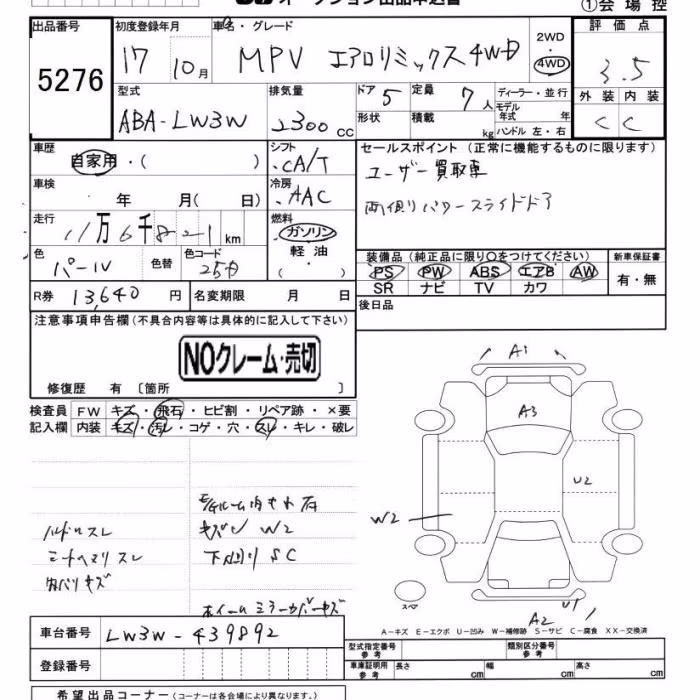 オークション出品申込書
①会場控
出品番号 5276
初度登録年月 17 10月
車名・グレード MPV エアロリミックス4WD
2WD・4WD
評価点 3.5
外装 C 内装 C
型式 ABA-LW3W
排気量 2300 CC
ドア 5 形状
定員 7人 積載 kg
ディーラー・並行
モデル年式 年
ハンドル 左・右
車歴 自家用・( )
シフト CA/T
車検 年 月( 日)
冷房 AAC
走行 11万6千821 km
燃料 ガソリン・軽油・( )
色 パール 色替 色コード 25D
R券 13,640円 名変期限 月 日
セールスポイント (正常に機能するものに限ります)
ユーザー買取車
両側パワースライドドア
装備品(純正品に限り○をつけてください) 新車保証書
PS PW ABS エアB AW 有・無
SR ナビ TV カワ
後日品
注意事項申告欄(不具合内容等は具体的に記入して下さい)
NOクレーム・売切
修復歴 有 〔箇所 〕
検査員記入欄 FW キズ・飛石・ヒビ割・リペア跡・×要
内装 キズ・汚レ・コゲ・穴・スレ・キレ・破レ
ハンドルスレ
シートヘタリスレ
内バリキズ
キズ W2
下回りSC
ホイールミラーカバーキズ
A1
A3
U2
W2
U1
A2
スペア
A-キズ E-エクボ U-凹み W-補修跡 S-サビ C-腐食 XX-交換済
車台番号 LW3W-439892
登録番号
型式指定番号 参考 類別区分番号 参考
車庫証明用 参考 長さ cm 幅 cm 高さ cm
希望出品コーナー(コーナーは各会場により異なります。)